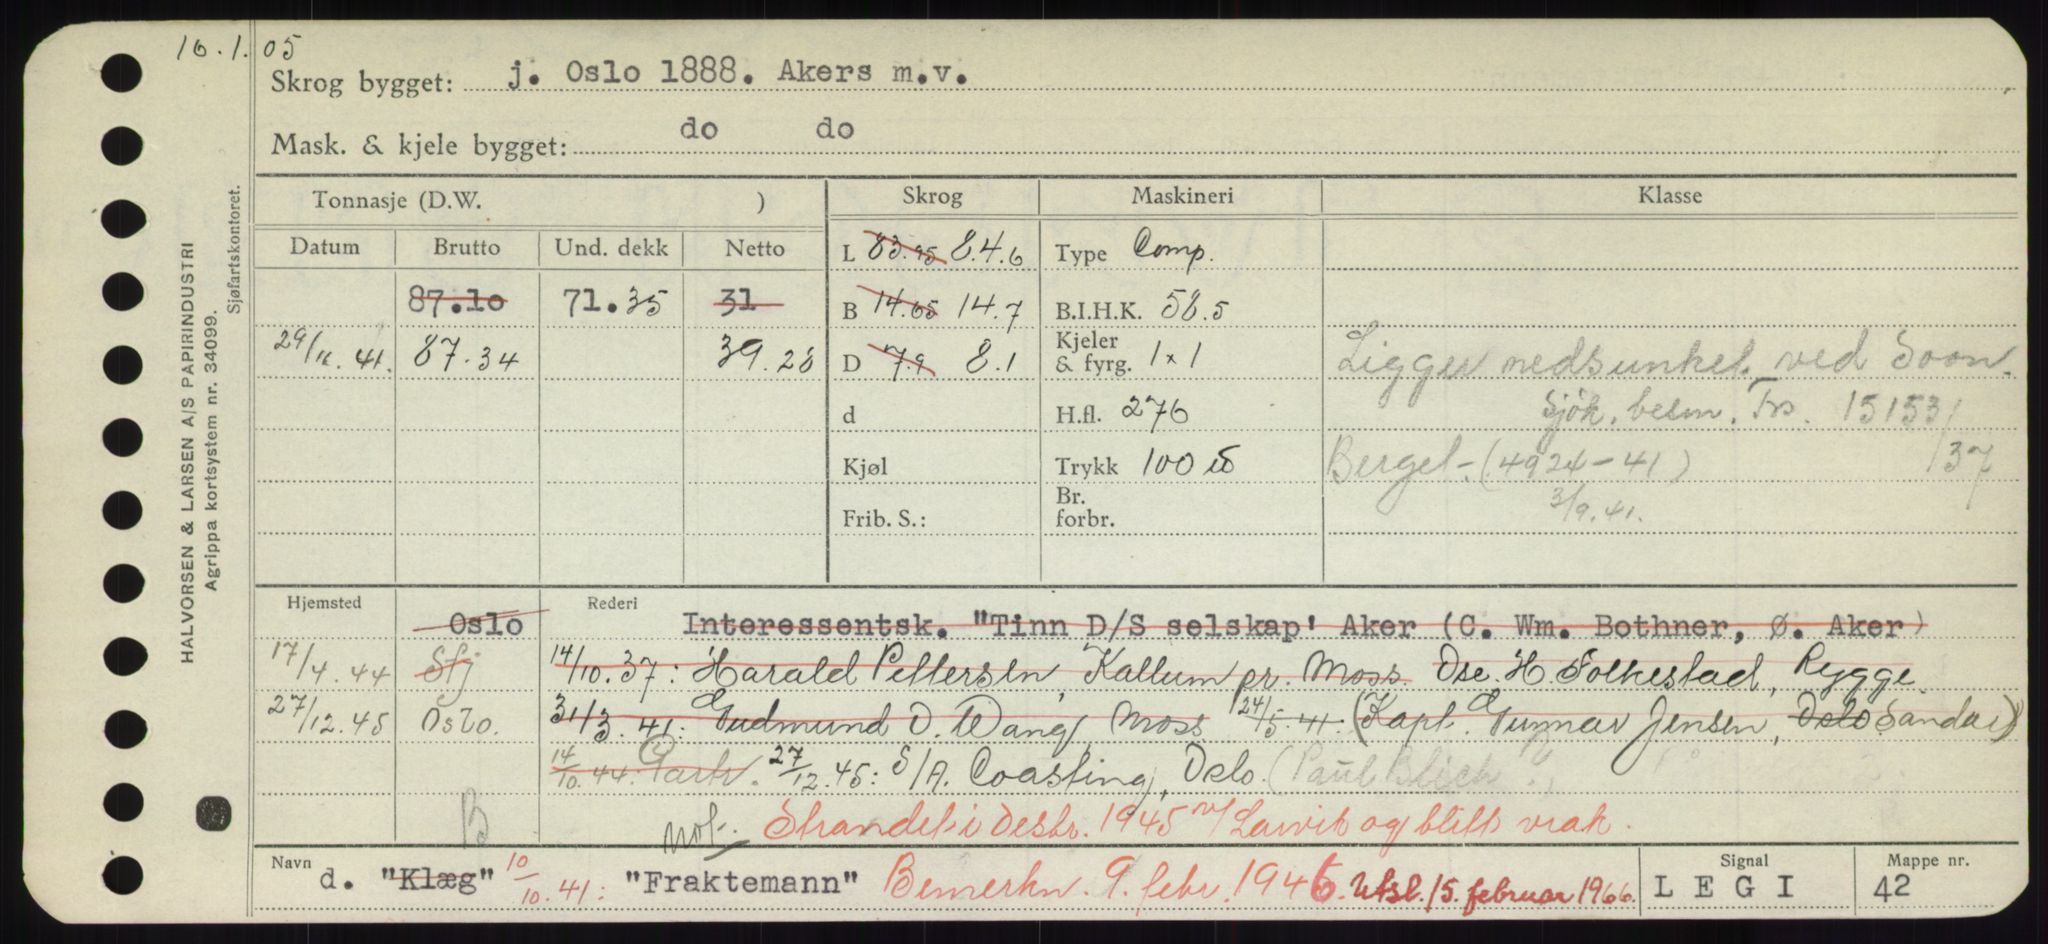 16.1.05
Skrog bygget: j. Oslo 1888. Akers m.v.
Mask. & kjele bygget: do do
HALVORSEN & LARSEN A/S PAPIRINDUSTRI
Agrippa kortsystem nr. 34099.
Sjøfartskontoret.
Tonnasje (D.W. ) Skrog Maskineri Klasse
Datum Brutto Und. dekk Netto L 83.95 84.6 Type Comp.
87.10 71.35 31 B 14.65 14.7 B.I.H.K. 58.5
29/11.41. 87.34 39.28 D 7.9 8.1 Kjeler & fyrg. 1x1 Ligger nedsunket ved Soon.
d H.fl. 276 Sjøk. besm. Trs. 15153/37
Kjøl Trykk 100 lb Berget - (4924-41)
Frib. S.: Br. forbr. 3/9.41.
Hjemsted Rederi
Oslo Interessentsk. "Tinn D/S selskap' Aker (C. Wm. Bothner, Ø. Aker)
17/4.44 Sfj 14/10.37: Harald Pettersen, Kallum pr. Moss. Dse. H. Folkestad, Rygge.
27/12.45 Oslo. 31/3.41: Gudmund O. Wang, Moss 24/5.41. (Kapt. Gunnar Jensen, Oslo Sandar)
14/10.44. Partr. 27/12.45: S/A. Coasting, Oslo. (Paul Blich
B not. Strandet i desbr. 1945 v/ Larvik og blitt vrak.
Navn d. "Klæg" 10/10.41: "Fraktemann" Bemerkn. 9. febr. 1946. Utsl. 15. februar 1966. Signal LEGI Mappe nr. 42